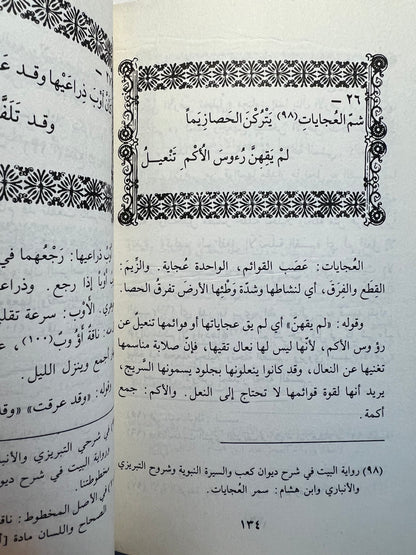 ٢٦ –
شمّ العُجاياتِ (٩٨) يَتْرُكْنَ الحَصازِيَماً
لمْ يَقِهنَّ رُءوسَ الأُكْمِ تَنْعيلُ
العُجايات: عَصَب القوائم، الواحدة عُجاية. والزِّيمَ:
القِطع والفِرَق، أي لنشاطها وشدّة وَطْئِها الأرضَ تفرقُ الحصا.
وقوله: «لم يقهنَّ» أي لم يق عجاياتها أو قوائمها تنعيلٌ عن
رؤوس الأكم، لأنها ليس لها نعال تقيها، فإن صلابة مناسمها
تغنيها عن النعال، وقد كانوا ينعلونها بجلود يسمونها السَّريح،
يريد أنها لقوة قوائمها لا تحتاج إلى النعل. والأكم: جمع
أكمة.
(٩٨) رواية البيت في شرح ديوان كعب والسيرة النبوية وشروح التبريزي
والأنباري وابن هشام: سمر العجايات.
١٣٤
أَوْبَ ذِراعَيْها وقد عَـ
وقد تَلَفَّـ
أوْبُ ذراعيها: رَجْعُهما في
أَوْباً إذا رجع. وذراعـ
الأَوْب: سرعة تقليـ
ناقةٌ أَوُوبٌ (١٠٠)،
أجمع وينزل الليل.
قوله: «وقد عرقت» «وقد
في شرحي التبريزي والأنبا
ورواية البيت في شرح ديوا
مخطوطتنا.
في الأصل المخطوط: ناقـ
الصحاح واللسان مادة [أ